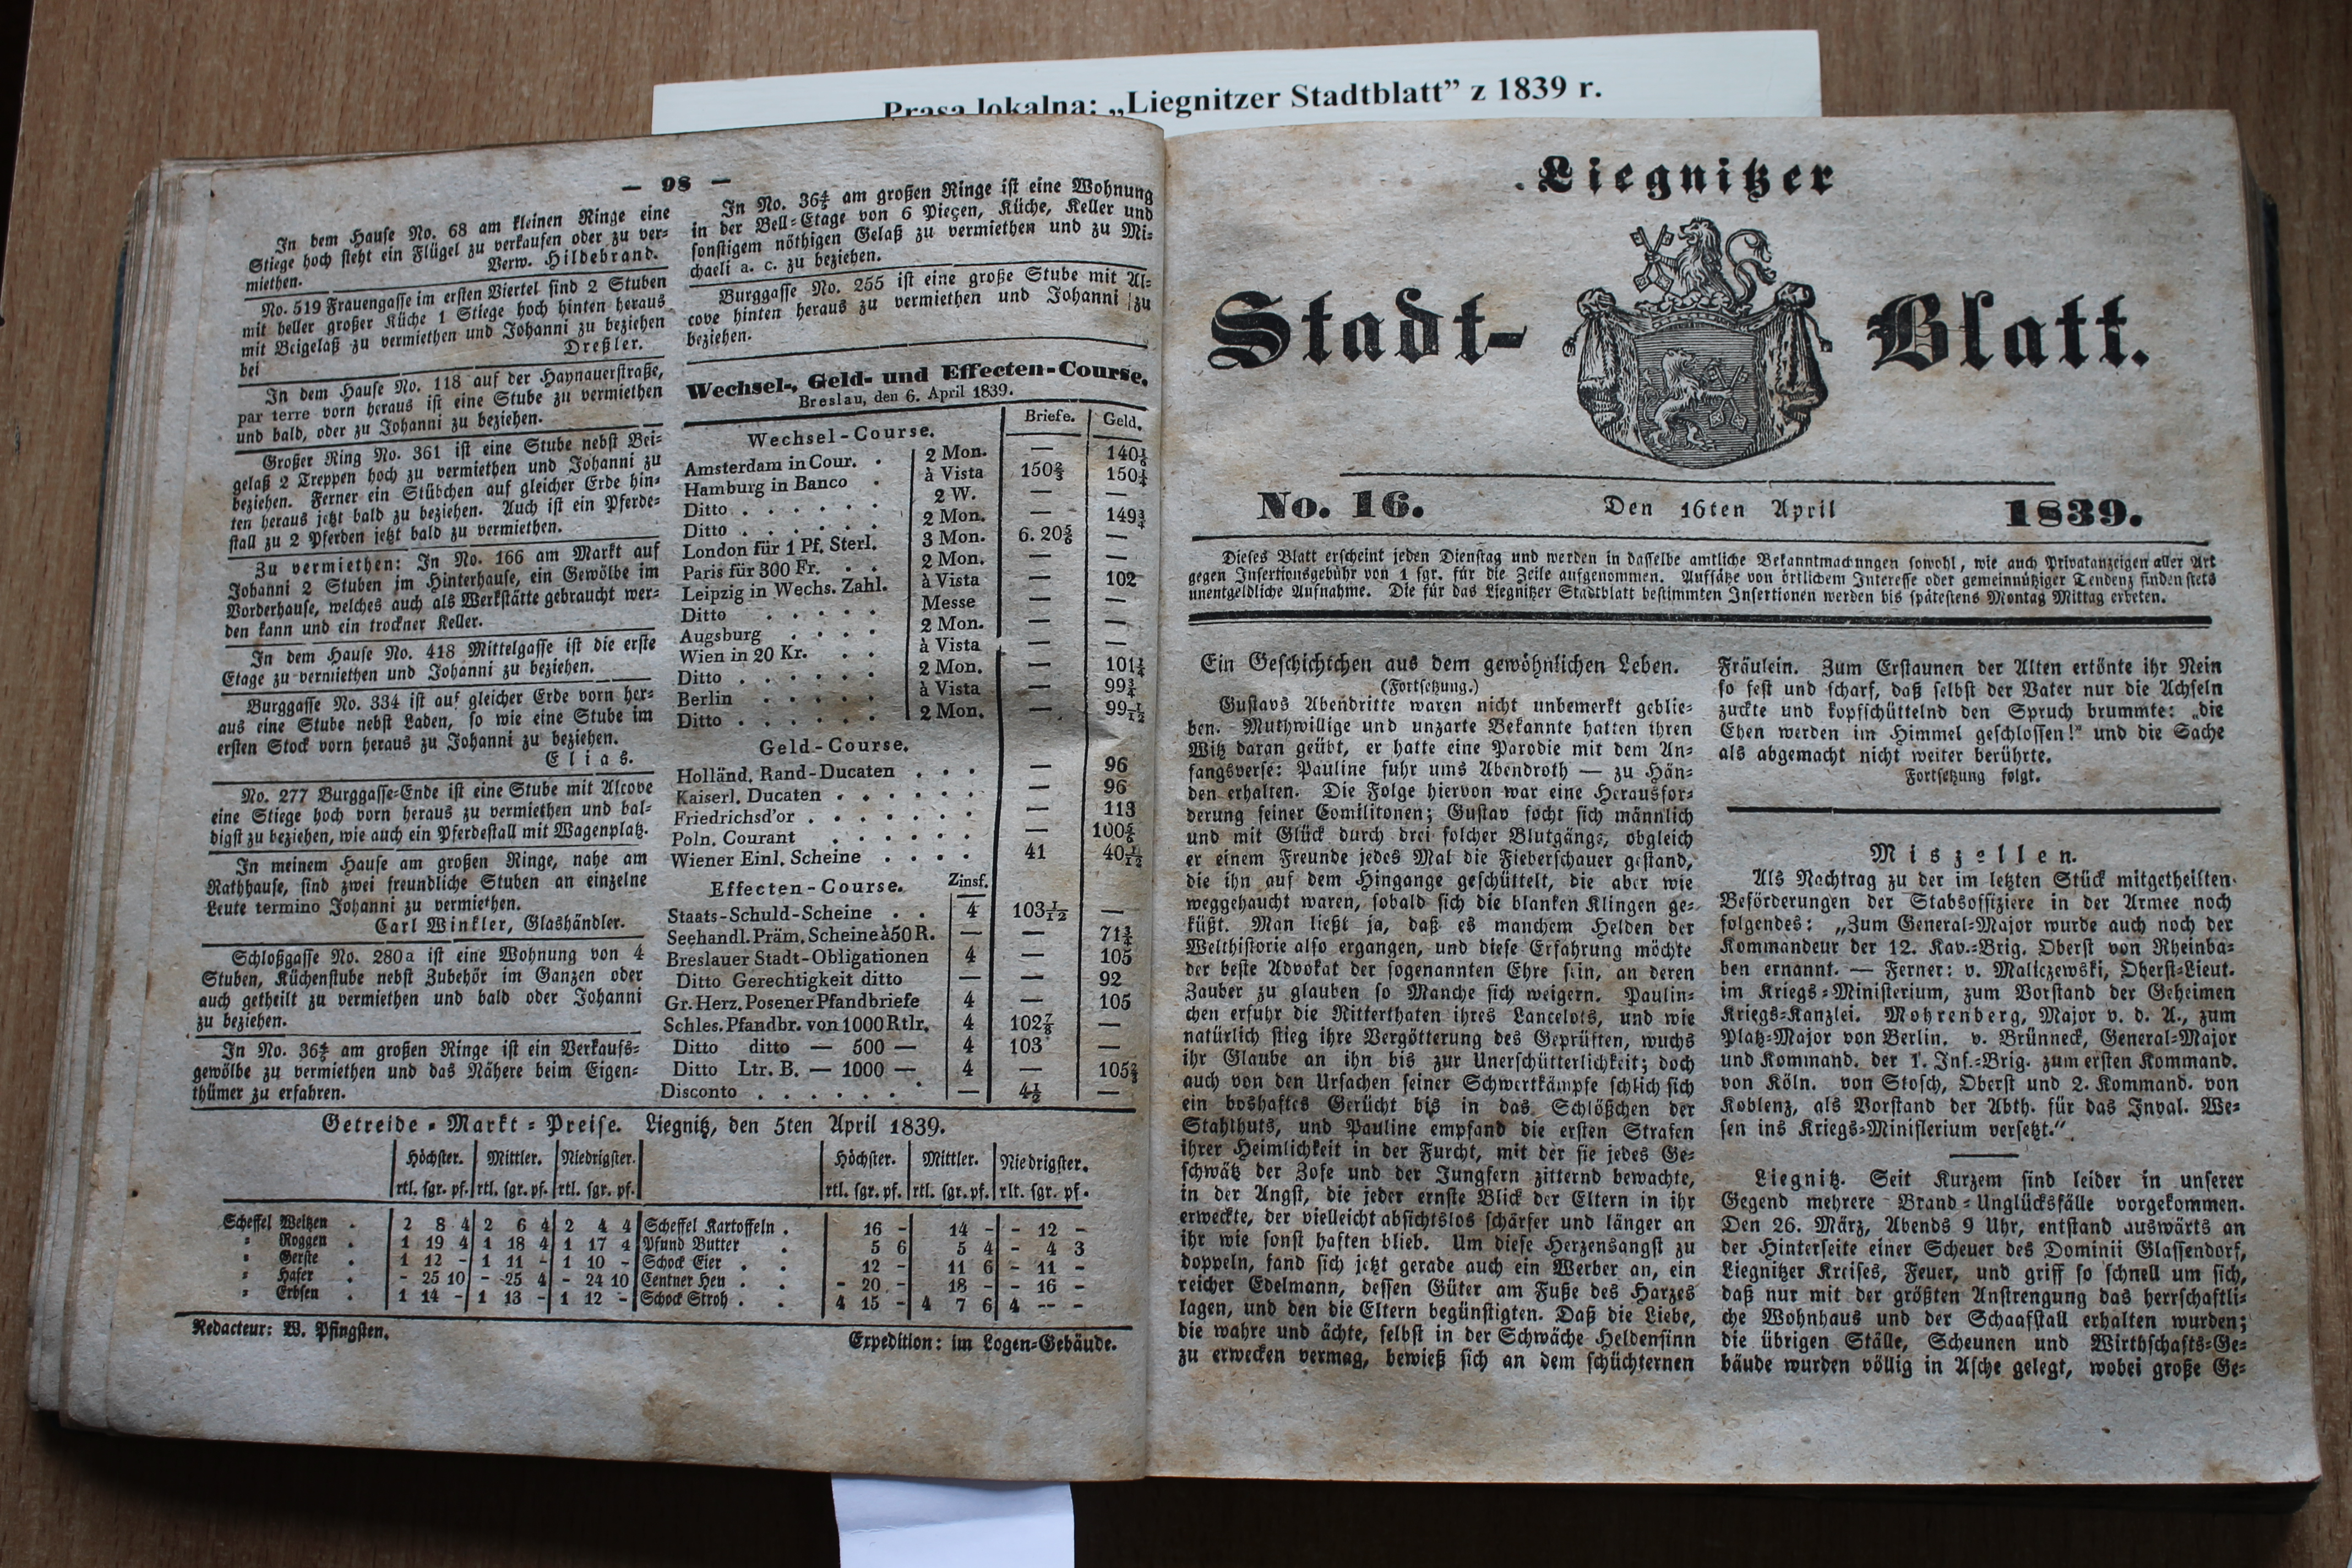 Prasa lokalna: „Liegnitzer Stadtblatt” z 1839 r.
— 98 —
In dem Hause No. 68 am kleinen Ringe eine
Stiege hoch steht ein Flügel zu verkaufen oder zu ver-
miethen. Verw. Hildebrand.
No. 519 Frauengasse im ersten Viertel sind 2 Stuben
mit heller großer Küche 1 Stiege hoch hinten heraus
mit Beigelaß zu vermiethen und Johanni zu beziehen
bei Dreßler.
In dem Hause No. 118 auf der Haynauerstraße,
par terre vorn heraus ist eine Stube zu vermiethen
und bald, oder zu Johanni zu beziehen.
Großer Ring No. 361 ist eine Stube nebst Bei-
gelaß 2 Treppen hoch zu vermiethen und Johanni zu
beziehen. Ferner ein Stübchen auf gleicher Erde hin-
ten heraus jetzt bald zu beziehen. Auch ist ein Pferde-
stall zu 2 Pferden jetzt bald zu vermiethen.
Zu vermiethen: In No. 166 am Markt auf
Johanni 2 Stuben im Hinterhause, ein Gewölbe im
Vorderhause, welches auch als Werkstätte gebraucht wer-
den kann und ein trockner Keller.
In dem Hause No. 418 Mittelgasse ist die erste
Etage zu vermiethen und Johanni zu beziehen.
Burggasse No. 334 ist auf gleicher Erde vorn her-
aus eine Stube nebst Laden, so wie eine Stube im
ersten Stock vorn heraus zu Johanni zu beziehen.
Elias.
No. 277 Burggasse-Ende ist eine Stube mit Alcove
eine Stiege hoch vorn heraus zu vermiethen und bal-
digst zu beziehen, wie auch ein Pferdestall mit Wagenplatz.
In meinem Hause am großen Ringe, nahe am
Rathhause, sind zwei freundliche Stuben an einzelne
Leute termino Johanni zu vermiethen.
Carl Winkler, Glashändler.
Schloßgasse No. 280a ist eine Wohnung von 4
Stuben, Küchenstube nebst Zubehör im Ganzen oder
auch getheilt zu vermiethen und bald oder Johanni
zu beziehen.
In No. 36 4/5 am großen Ringe ist ein Verkaufs-
gewölbe zu vermiethen und das Nähere beim Eigen-
thümer zu erfahren.
In No. 36 4/5 am großen Ringe ist eine Wohnung
in der Bell-Etage von 6 Pieçen, Küche, Keller und
sonstigem nöthigen Gelaß zu vermiethen und zu Mi-
chaeli a. c. zu beziehen.
Burggasse No. 255 ist eine große Stube mit Al-
cove hinten heraus zu vermiethen und Johanni zu
beziehen.
Wechsel-, Geld- und Effecten-Course.
Breslau, den 6. April 1839.
Wechsel-Course. Briefe. Geld.
Amsterdam in Cour. . 2 Mon. — 140 1/6
Hamburg in Banco . à Vista 150 2/3 150 1/4
Ditto . . . . . . 2 W. — —
Ditto . . . . . . 2 Mon. — 149 3/4
London für 1 Pf. Sterl. 3 Mon. 6. 20 5/6 —
Paris für 300 Fr. . . 2 Mon. — —
Leipzig in Wechs. Zahl. à Vista — 102
Ditto . . . . Messe — —
Augsburg . . . . 2 Mon. — —
Wien in 20 Kr. . . à Vista — —
Ditto . . . . . . 2 Mon. — 101 1/4
Berlin . . . . . à Vista — 99 3/4
Ditto . . . . . . 2 Mon. — 99 1/12
Geld-Course.
Holländ. Rand-Ducaten . . . — 96
Kaiserl. Ducaten . . . . . . — 96
Friedrichsd'or . . . . . . . — 113
Poln. Courant . . . . . . — 100 5/6
Wiener Einl. Scheine . . . . 41 40 1/12
Effecten-Course. Zinsf.
Staats-Schuld-Scheine . . 4 103 1/12 —
Seehandl. Präm. Scheine à 50 R. — — 71 3/4
Breslauer Stadt-Obligationen 4 — 105
Ditto Gerechtigkeit ditto — — 92
Gr. Herz. Posener Pfandbriefe 4 — 105
Schles. Pfandbr. von 1000 Rtlr. 4 102 7/8 —
Ditto ditto — 500 — 4 103 —
Ditto Ltr. B. — 1000 — 4 — 105 2/3
Disconto . . . . . . . — 4 1/2 —
Getreide-Markt-Preise. Liegnitz, den 5ten April 1839.
Höchster. Mittler. Niedrigster. Höchster. Mittler. Niedrigster.
rtl. sgr. pf. rtl. sgr. pf. rtl. sgr. pf. rtl. sgr. pf. rtl. sgr. pf. rlt. sgr. pf.
Scheffel Weitzen . 2 8 4 2 6 4 2 4 4 Scheffel Kartoffeln . 16 - 14 - - 12 -
" Roggen . 1 19 4 1 18 4 1 17 4 Pfund Butter . 5 6 5 4 - 4 3
" Gerste . 1 12 - 1 11 - 1 10 - Schock Eier . . 12 - 11 6 - 11 -
" Hafer . - 25 10 - 25 4 - 24 10 Centner Heu . . - 20 - 18 - - 16 -
" Erbsen . 1 14 - 1 13 - 1 12 - Schock Stroh . . 4 15 - 4 7 6 4 -- -
Redacteur: W. Pfingsten. Expedition: im Logen-Gebäude.
Liegnitzer
Stadt-Blatt.
No. 16. Den 16ten April 1839.
Dieses Blatt erscheint jeden Dienstag und werden in dasselbe amtliche Bekanntmachungen sowohl, wie auch Privatanzeigen aller Art
gegen Insertionsgebühr von 1 sgr. für die Zeile aufgenommen. Aufsätze von örtlichem Interesse oder gemeinnütziger Tendenz finden stets
unentgeldliche Aufnahme. Die für das Liegnitzer Stadtblatt bestimmten Insertionen werden bis spätestens Montag Mittag erbeten.
Ein Geschichtchen aus dem gewöhnlichen Leben.
(Fortsetzung.)
Gustavs Abendritte waren nicht unbemerkt geblie-
ben. Muthwillige und unzarte Bekannte hatten ihren
Witz daran geübt, er hatte eine Parodie mit dem An-
fangsverse: Pauline fuhr ums Abendroth — zu Hän-
den erhalten. Die Folge hiervon war eine Herausfor-
derung seiner Comilitonen; Gustav focht sich männlich
und mit Glück durch drei solcher Blutgänge, obgleich
er einem Freunde jedes Mal die Fieberschauer gestand,
die ihn auf dem Hingange geschüttelt, die aber wie
weggehaucht waren, sobald sich die blanken Klingen ge-
küßt. Man ließt ja, daß es manchem Helden der
Welthistorie also ergangen, und diese Erfahrung möchte
der beste Advokat der sogenannten Ehre sein, an deren
Zauber zu glauben so Manche sich weigern. Paulin-
chen erfuhr die Ritterthaten ihres Lancelots, und wie
natürlich stieg ihre Vergötterung des Geprüften, wuchs
ihr Glaube an ihn bis zur Unerschütterlichkeit; doch
auch von den Ursachen seiner Schwertkämpfe schlich sich
ein boshaftes Gerücht bis in das Schlößchen der
Stahlhuts, und Pauline empfand die ersten Strafen
ihrer Heimlichkeit in der Furcht, mit der sie jedes Ge-
schwätz der Zofe und der Jungfern zitternd bewachte,
in der Angst, die jeder ernste Blick der Eltern in ihr
erweckte, der vielleicht absichtslos schärfer und länger an
ihr wie sonst haften blieb. Um diese Herzensangst zu
doppeln, fand sich jetzt gerade auch ein Werber an, ein
reicher Edelmann, dessen Güter am Fuße des Harzes
lagen, und den die Eltern begünstigten. Daß die Liebe,
die wahre und ächte, selbst in der Schwäche Heldensinn
zu erwecken vermag, bewieß sich an dem schüchternen
Fräulein. Zum Erstaunen der Alten ertönte ihr Nein
so fest und scharf, daß selbst der Vater nur die Achseln
zuckte und kopfschüttelnd den Spruch brummte: „die
Ehen werden im Himmel geschlossen!" und die Sache
als abgemacht nicht weiter berührte.
Fortsetzung folgt.
Miszellen.
Als Nachtrag zu der im letzten Stück mitgetheilten
Beförderungen der Stabsoffiziere in der Armee noch
folgendes: „Zum General-Major wurde auch noch der
Kommandeur der 12. Kav.-Brig. Oberst von Rheinba-
ben ernannt. — Ferner: v. Maliczewski, Oberst-Lieut.
im Kriegs-Ministerium, zum Vorstand der Geheimen
Kriegs-Kanzlei. Mohrenberg, Major v. d. A., zum
Platz-Major von Berlin. v. Brünneck, General-Major
und Kommand. der 1. Inf.-Brig. zum ersten Kommand.
von Köln. von Stosch, Oberst und 2. Kommand. von
Koblenz, als Vorstand der Abth. für das Inval. We-
sen ins Kriegs-Ministerium versetzt."
Liegnitz. Seit Kurzem sind leider in unserer
Gegend mehrere Brand-Unglücksfälle vorgekommen.
Den 26. März, Abends 9 Uhr, entstand auswärts an
der Hinterseite einer Scheuer des Dominii Glassendorf,
Liegnitzer Kreises, Feuer, und griff so schnell um sich,
daß nur mit der größten Anstrengung das herrschaftli-
che Wohnhaus und der Schaafstall erhalten wurden;
die übrigen Ställe, Scheunen und Wirthschafts-Ge-
bäude wurden völlig in Asche gelegt, wobei große Ge-